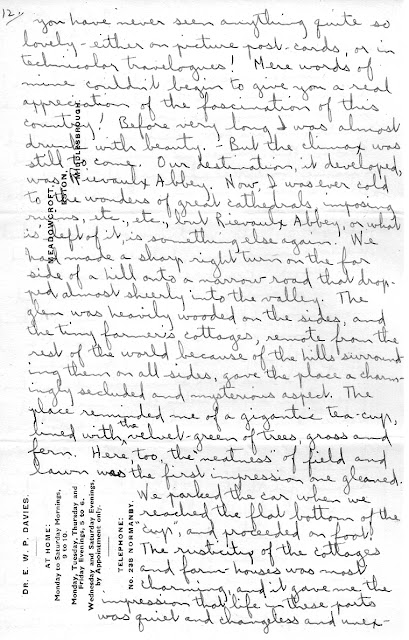 12.
you have never seen anything quite so
lovely - either on picture post-cards, or in
technicolor travelogues! Mere words of
mine couldn't begin to give you a real
appreciation of the fascination of this
country! Before very long I was almost
drunk with beauty. - But the climax was
still to come. Our destination, it developed,
was Rievaulx Abbey. Now, I was ever cold
to the wonders of great cathedrals, imposing
ruins, etc., etc., but Rievaulx Abbey, or what
is left of it, is something else again. We
had made a sharp right turn on the far
side of a hill onto a narrow road that drop-
ped almost sheerly into the valley. The
glen was heavily wooded on the sides, and
the tiny farmer's cottages, remote from the
rest of the world because of the hills surround-
ing them on all sides, gave the place a charm-
ingly secluded and mysterious aspect. The
place reminded me of a gigantic tea-cup,
lined with the velvet-green of trees, grass and
fern. Here too, the "neatness" of field and
lawn was the first impression one gleaned.
We parked the car when we
reached the flat bottom of the
"cup", and proceeded on foot!
The rusticity of the cottages
and farm-houses was most
charming, and it gave me the
impression that life in these parts
was quiet and changeless and unex-
MEADOWCROFT,
ESTON,
MIDDLESBROUGH.
DR. E. W. P. DAVIES.
AT HOME:
Monday to Saturday Mornings,
9 to 10.
Monday, Tuesday, Thursday and
Friday Evenings, 5 to 6.
Wednesday and Saturday Evenings,
by Appointment only.
TELEPHONE:
No. 238 NORMANBY.